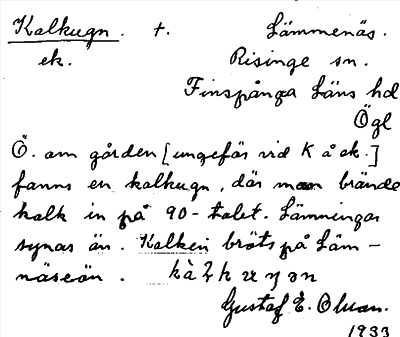 Kalkugn. +. Lämmenäs.
ek. Risinge sn.
Finspånga Läns hd
Ögl
Ö. om gården [ungefär vid K å ek.]
fanns en kalkugn, där man brände
kalk in på 90-talet. Lämningar
synas än. Kalken bröts på Läm-
näseön.
Gustaf E. Olsson.
1933